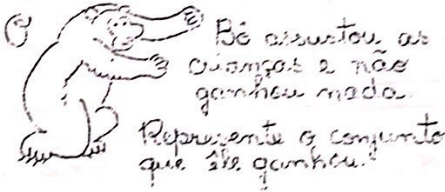 Bó assustou as
crianças e não
ganhou nada.
Represente o conjunto
que êle ganhou.